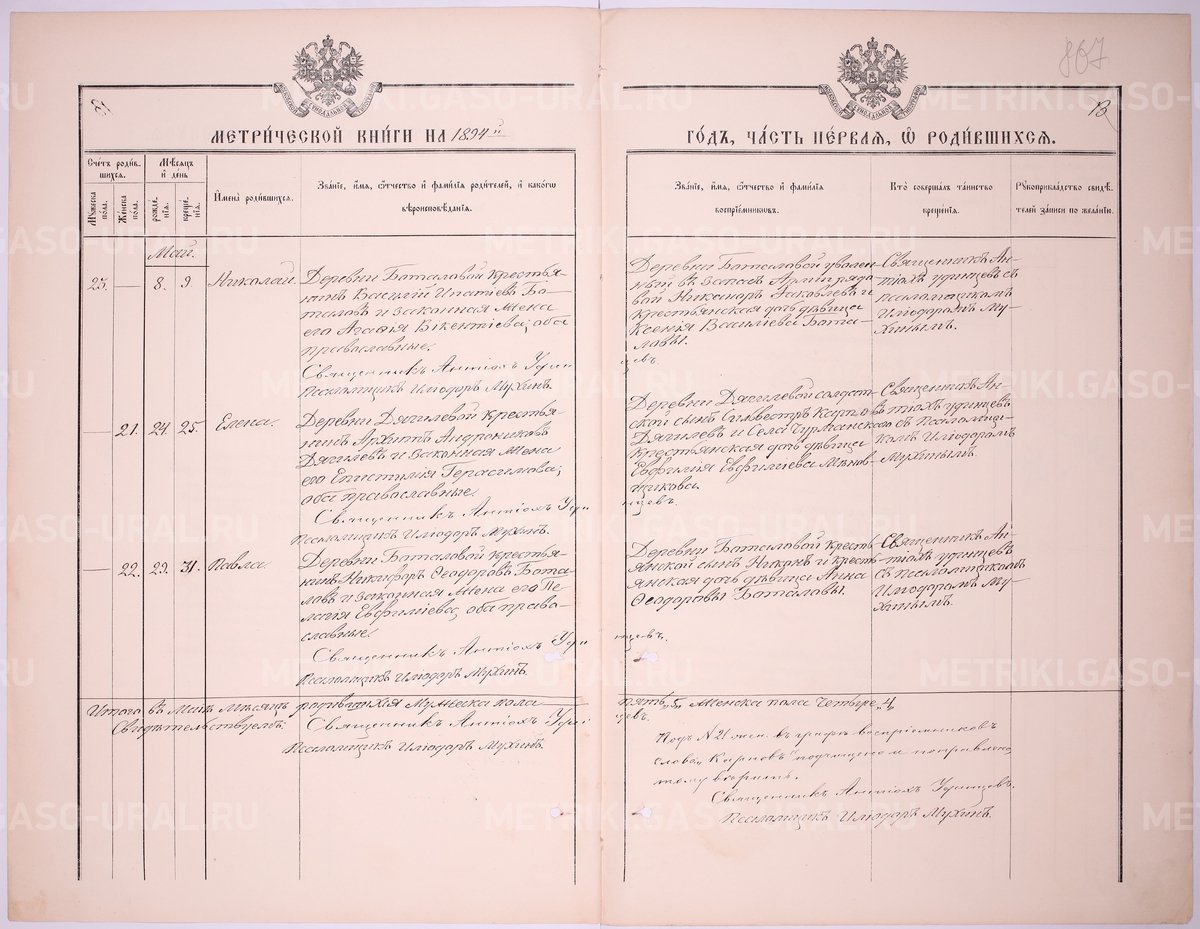 867
13
МЕТРИЧЕСКОЙ КНИГИ НА 1894й
ГОДЪ, ЧАСТЬ ПЕРВАЯ, Ѡ РОДИВШИХСЯ.
Счетъ родившихся.
Мужеска пола.
Женска пола.
Мѣсяцъ и день
рожденія.
крещенія.
Имена родившихся.
Званіе, имя, отчество и фамилія родителей, и какогѡ
вѣроисповѣданія.
Званіе, имя, отчество и фамилія
воспріемниковъ.
Кто совершалъ таинство
крещенія.
Рукоприкладство свидѣ-
телей записи по желанію.
Май.
23. — 8. 9. Николай.
Деревни Баталовой крестья-
нинъ Василій Ипатіевъ Ба-
таловъ и законная жена
его Агафія Викентіева; оба
православные.
Священникъ Антіохъ Удрин
Псаломщикъ Илюдоръ Мухинъ.
Деревни Баталовой уволен-
ный въ запасъ Арміи рядо-
вой Никаноръ Яковлевъ и
крестьянская дочь дѣвица
Ксенія Васильева Бата-
ловы.
цевъ.
Священникъ Ан-
тіохъ Удинцевъ съ
псаломщикомъ
Илюдоромъ Му-
хинымъ.
— 21. 24. 25. Елена.
Деревни Дягилевой крестья-
нинъ Архипъ Андрониковъ
Дягилевъ и законная жена
его Епистимія Герасимова;
оба православные.
Священникъ Антіохъ Уди
Псаломщикъ Илюдоръ Мухинъ.
Деревни Дягилевой солдат-
ской сынъ Силвестръ Карповъ
Дягилевъ и Села
Крестьянская дочь дѣвица
Евфимія Евфиміева
нцевъ.
Священникъ Ан-
тіохъ Удинцевъ
съ Псаломщи-
комъ Илюдоромъ
Мухинымъ.
— 22. 29. 31. Павла.
Деревни Баталовой крестья-
нинъ Никифоръ Ѳеодоровъ Бата-
ловъ и законная жена его Пе-
лагія Евфиміева, оба право-
славные.
Священникъ Антіохъ Уди
Псаломщикъ Илюдоръ Мухинъ.
Деревни Баталовой Кресть-
янской сынъ Никонъ и кресть-
янская дочь дѣвица Анна
Ѳеодоровы Баталовы.
нцевъ.
Священникъ Ан-
тіохъ Удинцевъ
съ псаломщикомъ
Илюдоромъ Му-
хинымъ.
Итого въ Маѣ мѣсяцѣ родившихся Мужеска пола
пять „5„ Женска пола Четыре „4„
Свидѣтельствуемъ: Священникъ Антіохъ Уди
цевъ.
Псаломщикъ Илюдоръ Мухинъ.
Подъ № 21 жен. въ графѣ воспріемниковъ
слово „Карповъ" подчищено и поправлено
тому вѣрить.
Священникъ Антіохъ Удинцевъ.
Псаломщикъ Илюдоръ Мухинъ.
METRIKI.GASO-URAL.RU